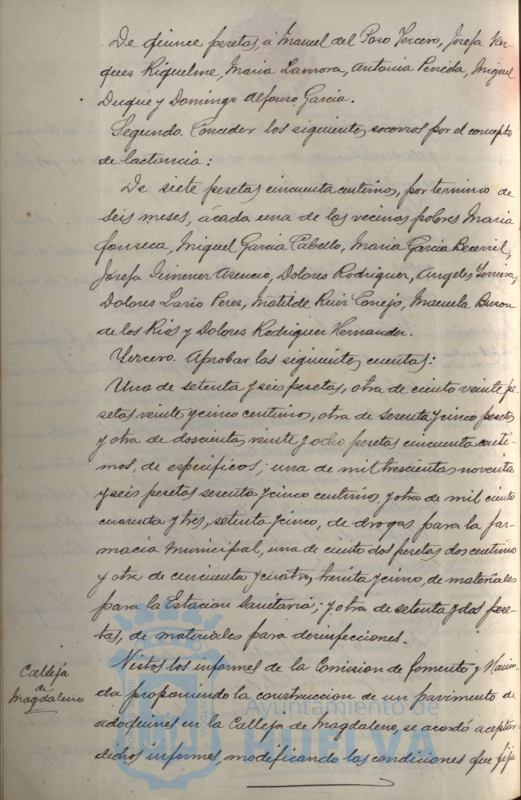 De quince pesetas, á Manuel del Pozo Tercero, Josefa Var-
gues Riquelme, Maria Zamora, Antonia Pereda, Miguel
Duque y Domingo Alfonso Garcia.
Segundo. Conceder los siguientes socorros por el concepto
de lactancia:
De siete pesetas cincuenta centimos, por termino de
seis meses, á cada una de las vecinas pobres Maria
Fonseca, Miguel Garcia Cabello, Maria Garcia Becerril,
Josefa Jimenez Asencio, Dolores Rodriguez, Angeles
Dolores Lario Perez, Matilde Ruiz Conejo, Manuela Buron
de los Rios y Dolores Rodriguez Hernandez.
Tercero. Aprobar las siguientes cuentas:
Una de setenta y seis pesetas, otra de ciento veinte pe-
setas veinte y cinco centimos, otra de sesenta y cinco pesetas
y otra de doscientas veinte y ocho pesetas cincuenta centi-
mos, de especificos; una de mil trescientas noventa
y seis pesetas sesenta y cinco centimos y otra de mil ciento
cuarenta y tres, setenta y cinco, de drogas para la far-
macia Municipal, una de ciento dos pesetas dos centimos
y otra de cincuenta y cuatro, treinta y cinco, de materiales
para la Estacion Sanitaria; y otra de setenta y dos pese-
tas, de materiales para desinfecciones.
Calleja
de
Magdaleno
Vistos los informes de la Comision de Fomento y Hacien-
da proponiendo la construccion de un pavimento de
adoquines en la Calleja de Magdaleno, se acordó aceptar
dichos informes, modificando las condiciones que fija
Ayuntamiento de
HUELVA